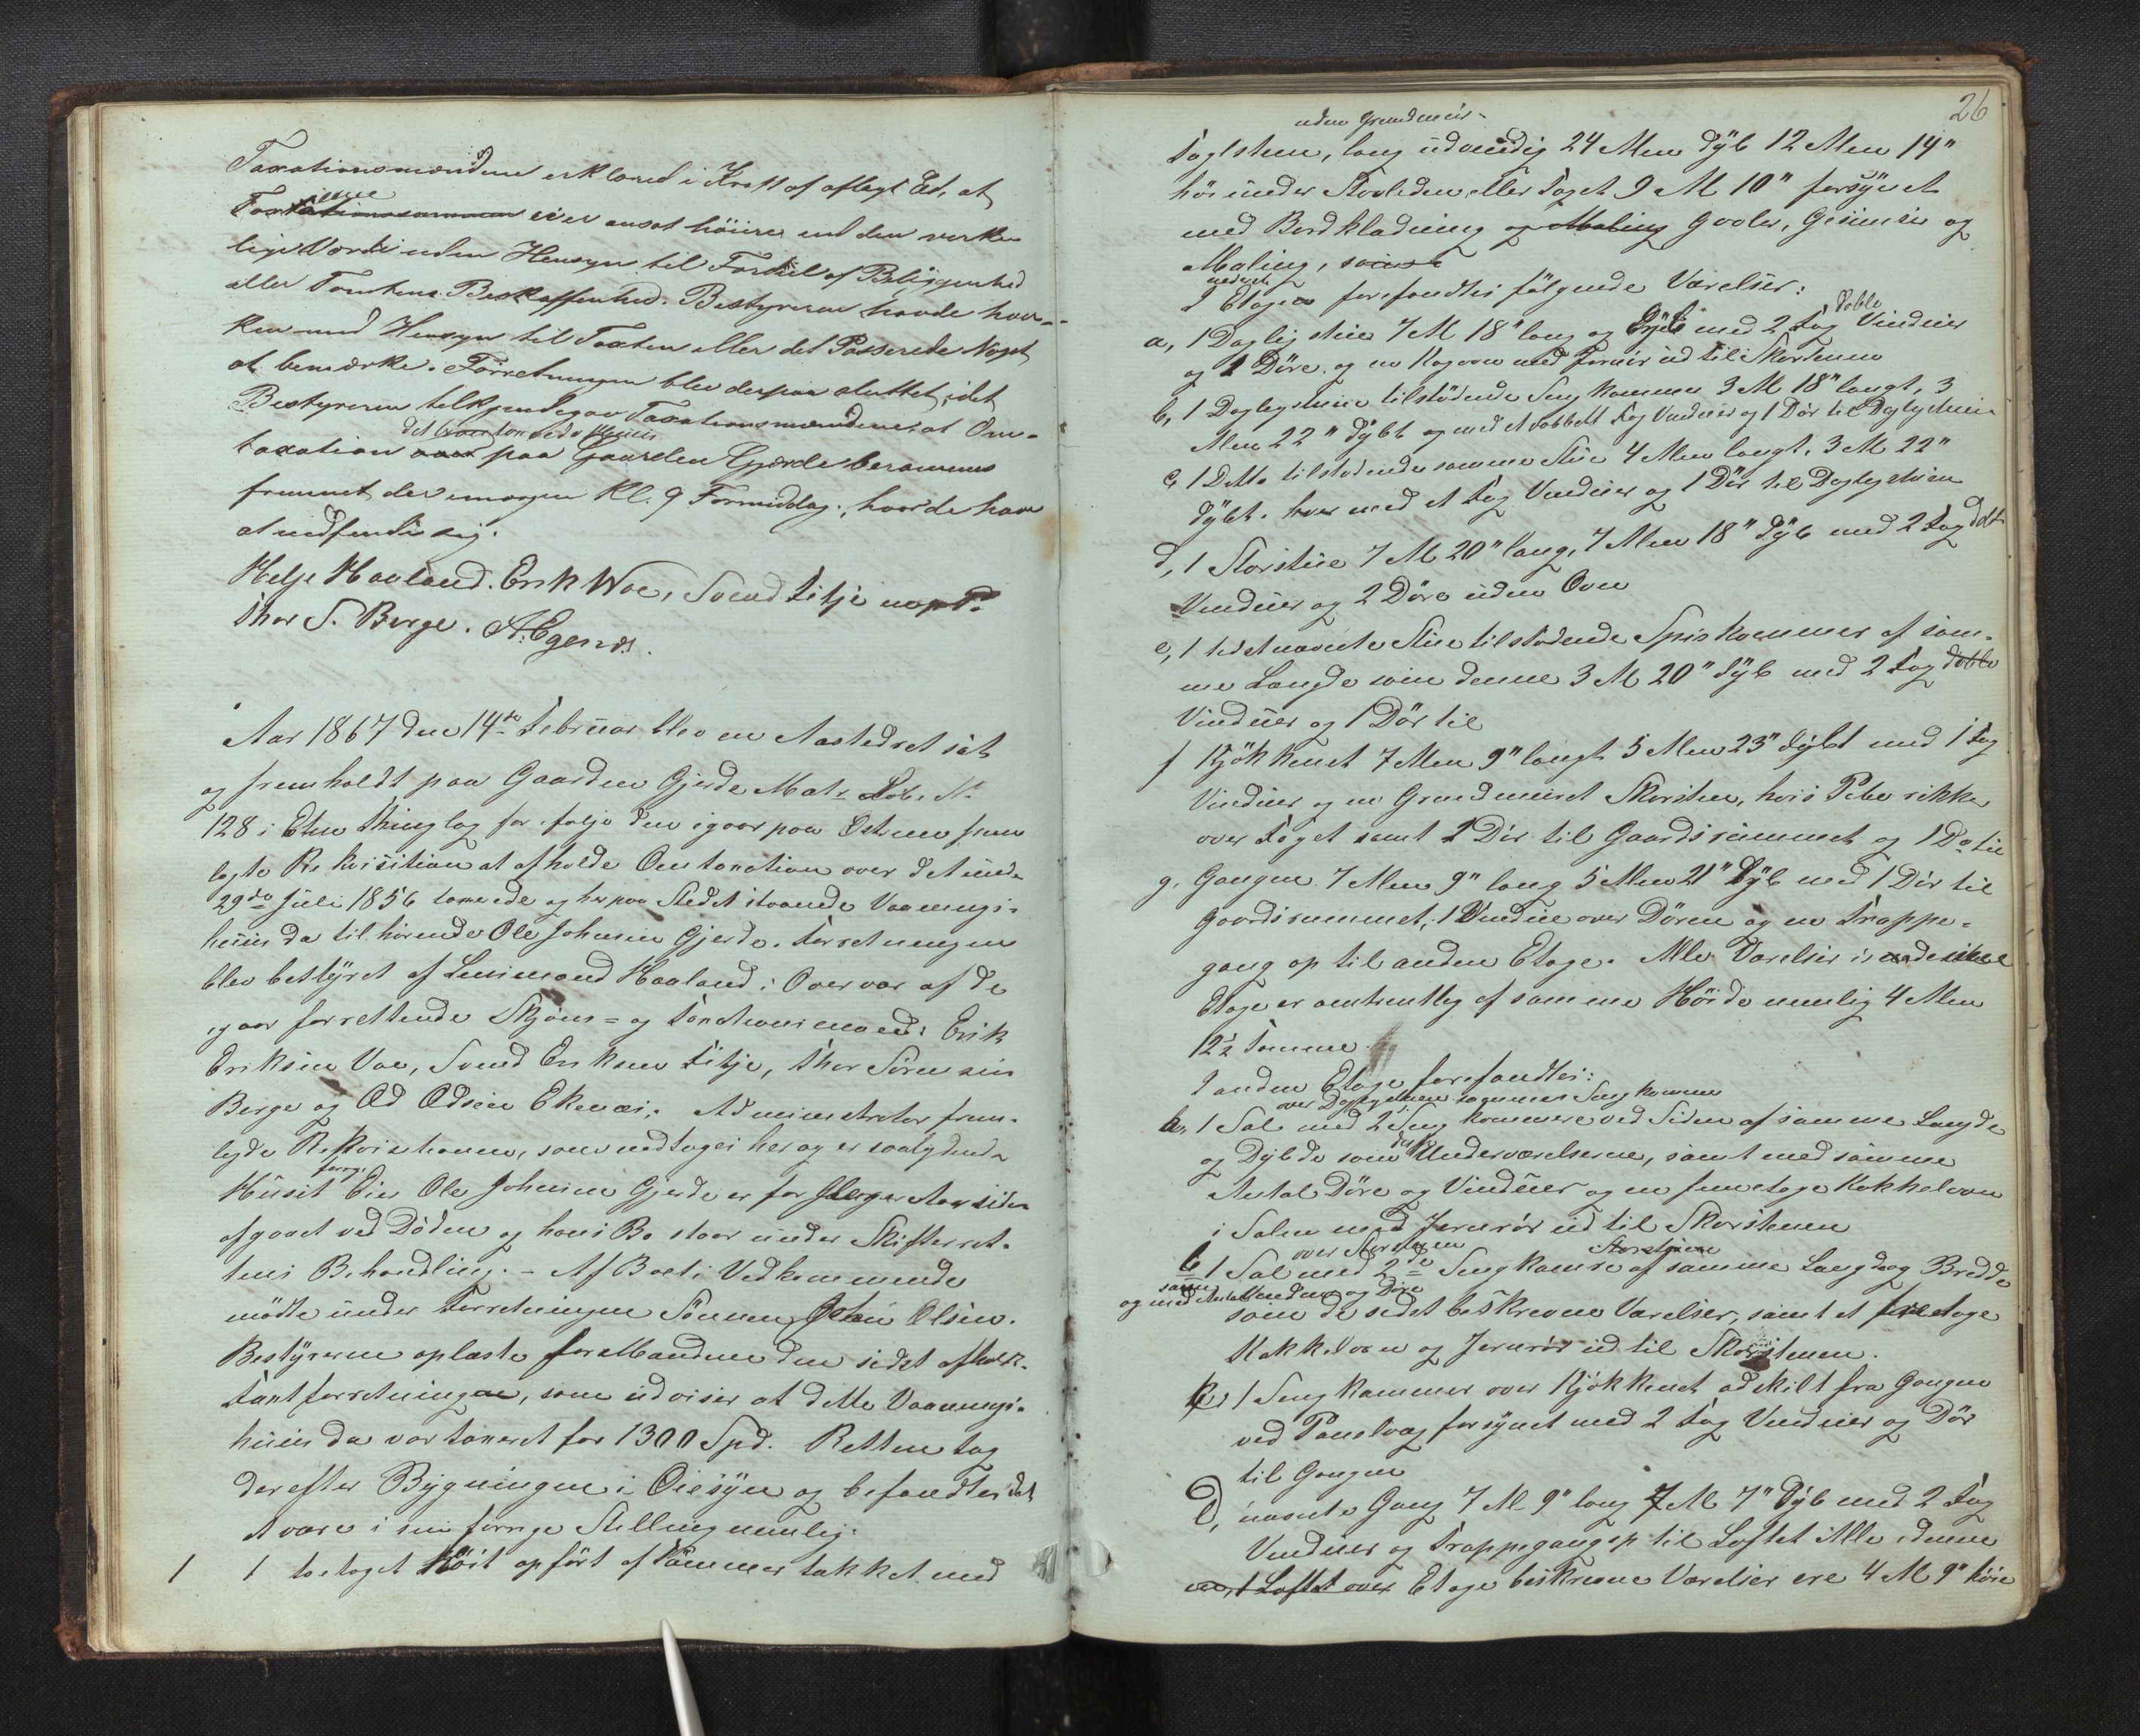 Taxationsmændene erklæred i Kraft af aflagt Ed, at
Taxterne ei er ansat höiere end den verke-
lige Værdi uden Hensyn til Fordeel af Beliggenhed
eller Tomtens Beskaffenhed. Bestyreren havde hver-
ken med Hensyn til Taxten eller det Passerede Noget
at bemærke. Forretningen blev derpaa sluttet, idet
Bestyreren tilkjendegav Taxationsmændene, at Om-
taxation paa Gaarden Gjerde berammes
fremmet der imorgen Kl. 9 Formiddag, hvor de have
at indfinde sig.
Helje Haaland. Erik Woe, Svend Titje
Thor S. Berge.
Aar 1867 den 14de Februar blev en Aastedret sat
og fremholdt paa Gaarden Gjerde Matr Löb. No
128 i Etne Thinglag for ifølge den igaar paa Østreim frem
lagte Rekvisition at afholde Omtaxation over det und.
29de Juli 1856 taxerede og her paa Stedet staaende Vaanings-
huus da tilhørende Ole Johnsen Gjerde. Forretningen
blev bestÿret af Lensmand Haaland i Overvær af de
igaar forrettende Skjöns- og Taxationsmænd: Erik
Eriksen Vae, Svend Eriksen Titje, Thor Sørensen
Berge og Od Odsen Ekenæs. Administrator frem-
lagde Rekvisitionen, som modtages her og er saalydende
Husets forrige Eier Ole Johnsen Gjerde er for flere Aar siden
afgaaet ved Døden og hans Bo staar under Skifteret-
tens Behandling. - Af Boets Vedkommende
mødte under Forretningen Sönnen John Olsen.
Bestÿreren oplæste for Mændene den sidst afholdte
Taxtforretningen, som udviser at dette Vaanings-
huus da var taxeret for 1300 Spd. Retten tog
derefter Bÿgningen i Öiesÿn og befandtes det
at være i sin forrige Stilling nemlig:
1 1 toetaget Huus opført af Tømmer takket med
26
uden Grundmuur
Taglsteen, lang udvendig 24 Alen dÿb 12 Alen 14"
höi under Stavleden eller Taget 9 Al 10" forsÿnet
med Bordklædning og Maling Gvoler, Gesimser og
Maling, samt
I nederste Etage forefandtes følgende Værelser:
a, 1 Daglig stue 7 Al 18" lang og dÿb med 2 Fag doble Vinduer
og 2 Döre og en Kogovn med Jernrör ud til Skorstenen
b, 1 Daglig stuen tilstödende Sengkammer 3 Al 18" langt, 3
Alen 22" dÿbt og med et dobbelt Fag Vinduer og 1 Dör til Daglig stuen
c, 1 Ditto tilstødende samme Stue 4 Alen langt, 3 Al 22"
dÿbt. med et Fag Vinduer og 1 Dör til Dagligstuen
d, 1 Storstue 7 Al 20" lang, 7 Alen 18" dÿb med 2 Fag dobl
Vinduer og 2 Döre uden Ovn
e, 1 sidstnævnte Stue tilstødende Spiskammer af sam-
me Længde som denne 3 Al 20" dÿb med 2 Fag doble
Vinduer og 1 Dör til
f Kjökkenet 7 Alen 9" langt 5 Alen 23" dÿbt med 1 Fag
Vinduer og en Grundmuret Skorsten, hvis Pibe rikker
over Taget samt 1 Dör til Gaardsrummet og 1 Do til
g, Gangen 7 Alen 9" lang 5 Alen 21" dÿb med 1 Dör til
Gaardsrummet, 1 Vindue over Dören og en Trappe-
gang op til anden Etage. Alle Værelser i
Etage er omtrentlig af samme Höide nemlig 4 Alen
12½ Tomme
I anden Etage forefandtes:
over Dagligstuen sammes Sengkammer
a, 1 Sal med 2 Sengkammere ved Siden af samme Længde
og Dÿbde som Underværelserne, samt med samme
Antal Döre og Vinduer og en fem etage Kakkelovn
i Salen med Jernrör ud til Skorstenen
over Storstuen
b 1 Sal med 2de Sengkamre af samme Længde og Bredde
og med samme Antal Vinduer og Döre
som de sidst beskrevne Værelser, samt et etage
Kakkelovn og Jernrör ud til Skorstenen.
c, 1 Sengkammer over Kjökkenet adskilt fra Gangen
ved Panelvæg forsÿnet med 2 Fag Vinduer og Dör
til Gangen
d, nævnte Gang 7 Al 9" lang 7 Al 7" dÿb med 2 Fag
Vinduer og Trappegang op til Loftet Alle i denne
Etage beskrevne Værelser ere 4 Al 9" höie